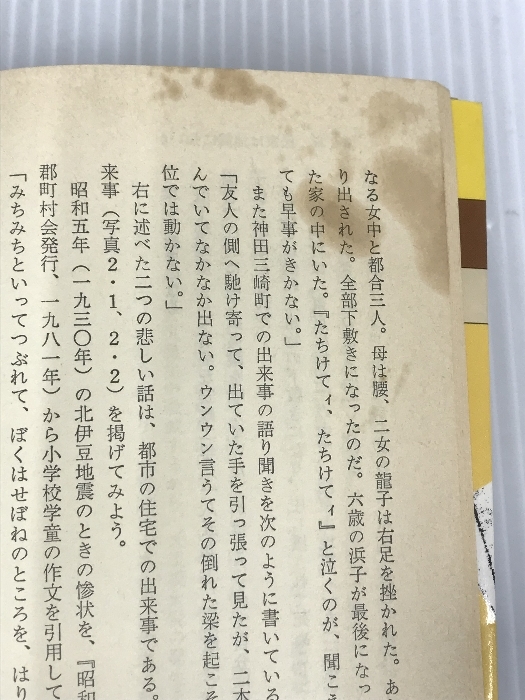 なる女中と都合三人。母は腰、二女の龍子は右足を挫かれた。あ
り出された。全部下敷きになったのだ。六歳の浜子が最後になっ
た家の中にいた。『たちけてィ、たちけてィ』と泣くのが、聞こえ
ても早事がきかない。」
また神田三崎町での出来事の語り聞きを次のように書いている
「友人の側へ馳け寄って、出ていた手を引っ張って見たが、二本
んでいてなかなか出ない。ウンウン言うてその倒れた梁を起こそ
位では動かない。」
右に述べた二つの悲しい話は、都市の住宅での出来事である。
来事（写真２・１、２・２）を掲げてみよう。
昭和五年（一九三〇年）の北伊豆地震のときの惨状を、『昭和
郡町村会発行、一九八一年）から小学校学童の作文を引用して
「みちみちといってつぶれて、ぼくはせぼねのところを、はり